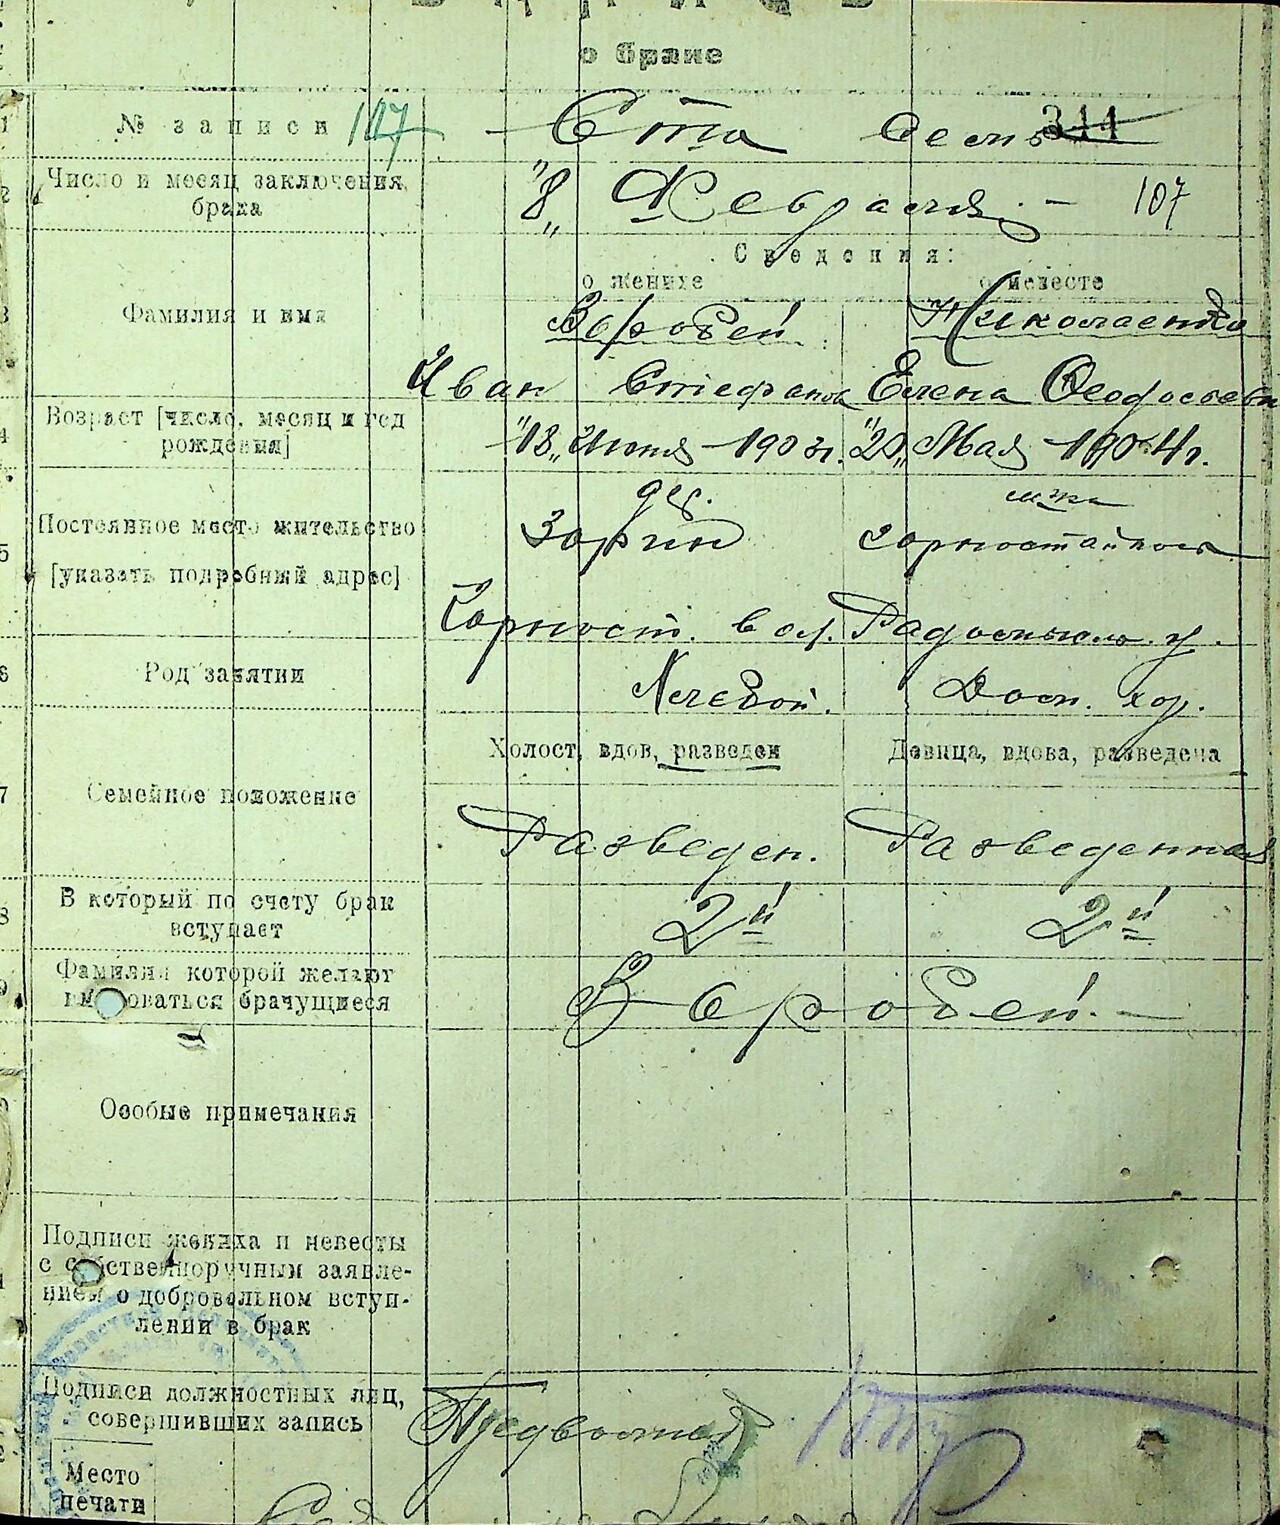 о браке
№ записи 107 Сто семь 344
Число и месяц заключения "8" Февраля. — 107
брака
Сведения:
о женихе о невесте
Фамилия и имя Воробей Николаенко
Иван Стефанов Елена Феодосьевн
Возраст [число, месяц и год
рождения] "18" Июня 1903г. "20" Мая 1904г.
дер.
Постоянное место жительство Зорин
[указать подробный адрес]
Горност. вол. Радомысль. у.
Род занятий Дом. хоз.
Холост, вдов, разведен Девица, вдова, разведена
Семейное положение
Разведен. Разведенная
В который по счету брак 2й 2й
вступает
Фамилия которой желают
именоваться брачущиеся Воробей. —
Особые примечания
Подписи жениха и невесты
с собственноручным заявле-
нием о добровольном вступ-
лении в брак
Подписи должностных лиц,
совершивших запись
Место
печати